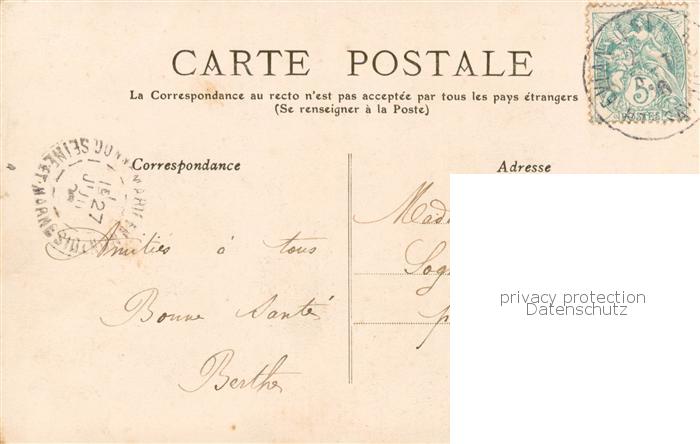 CARTE POSTALE
La Correspondance au recto n'est pas acceptée par tous les pays étrangers
(Se renseigner à la Poste)
5
POSTES
Correspondance
Adresse
SEINE-ET-MARNE
15 27
Amitiés à tous
Bonne Santé
Berthe
privacy protection
Datenschutz